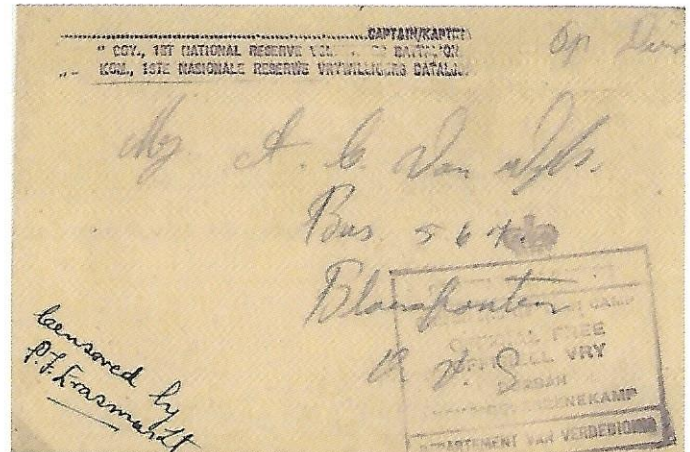 CAPTAIN/KAPTEIN
" COY., 1ST NATIONAL RESERVE BATTALION
KOM., 1STE NASIONALE RESERWE VRYWILLIGERS BATALJON
Op Diens
Mej. A. C. Van Wyk.
Bus. 567.
Bloemfontein
O V S
CAMP
OFFICIAL FREE
OFFISIEEL VRY
DURBAN
DEPARTEMENT VAN VERDEDIGING
Censored by
P.F. Erasmus